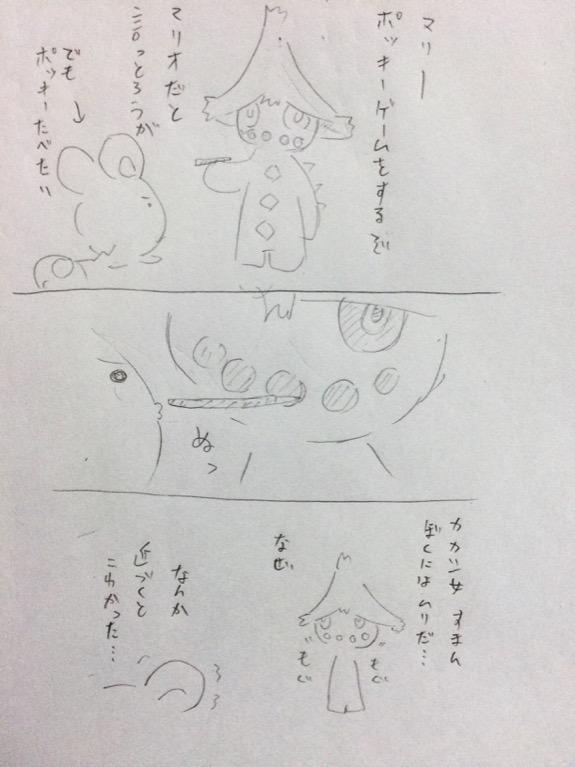 マリー
ポッキーゲームをするぞ
マリオだと
言っとろうが
でも
ポッキーたべたい
ぬっ
カカシ女 すまん
ぼくにはムリだ…
なぜ
もぐ
もぐ
なんか
近づくと
こわかった…